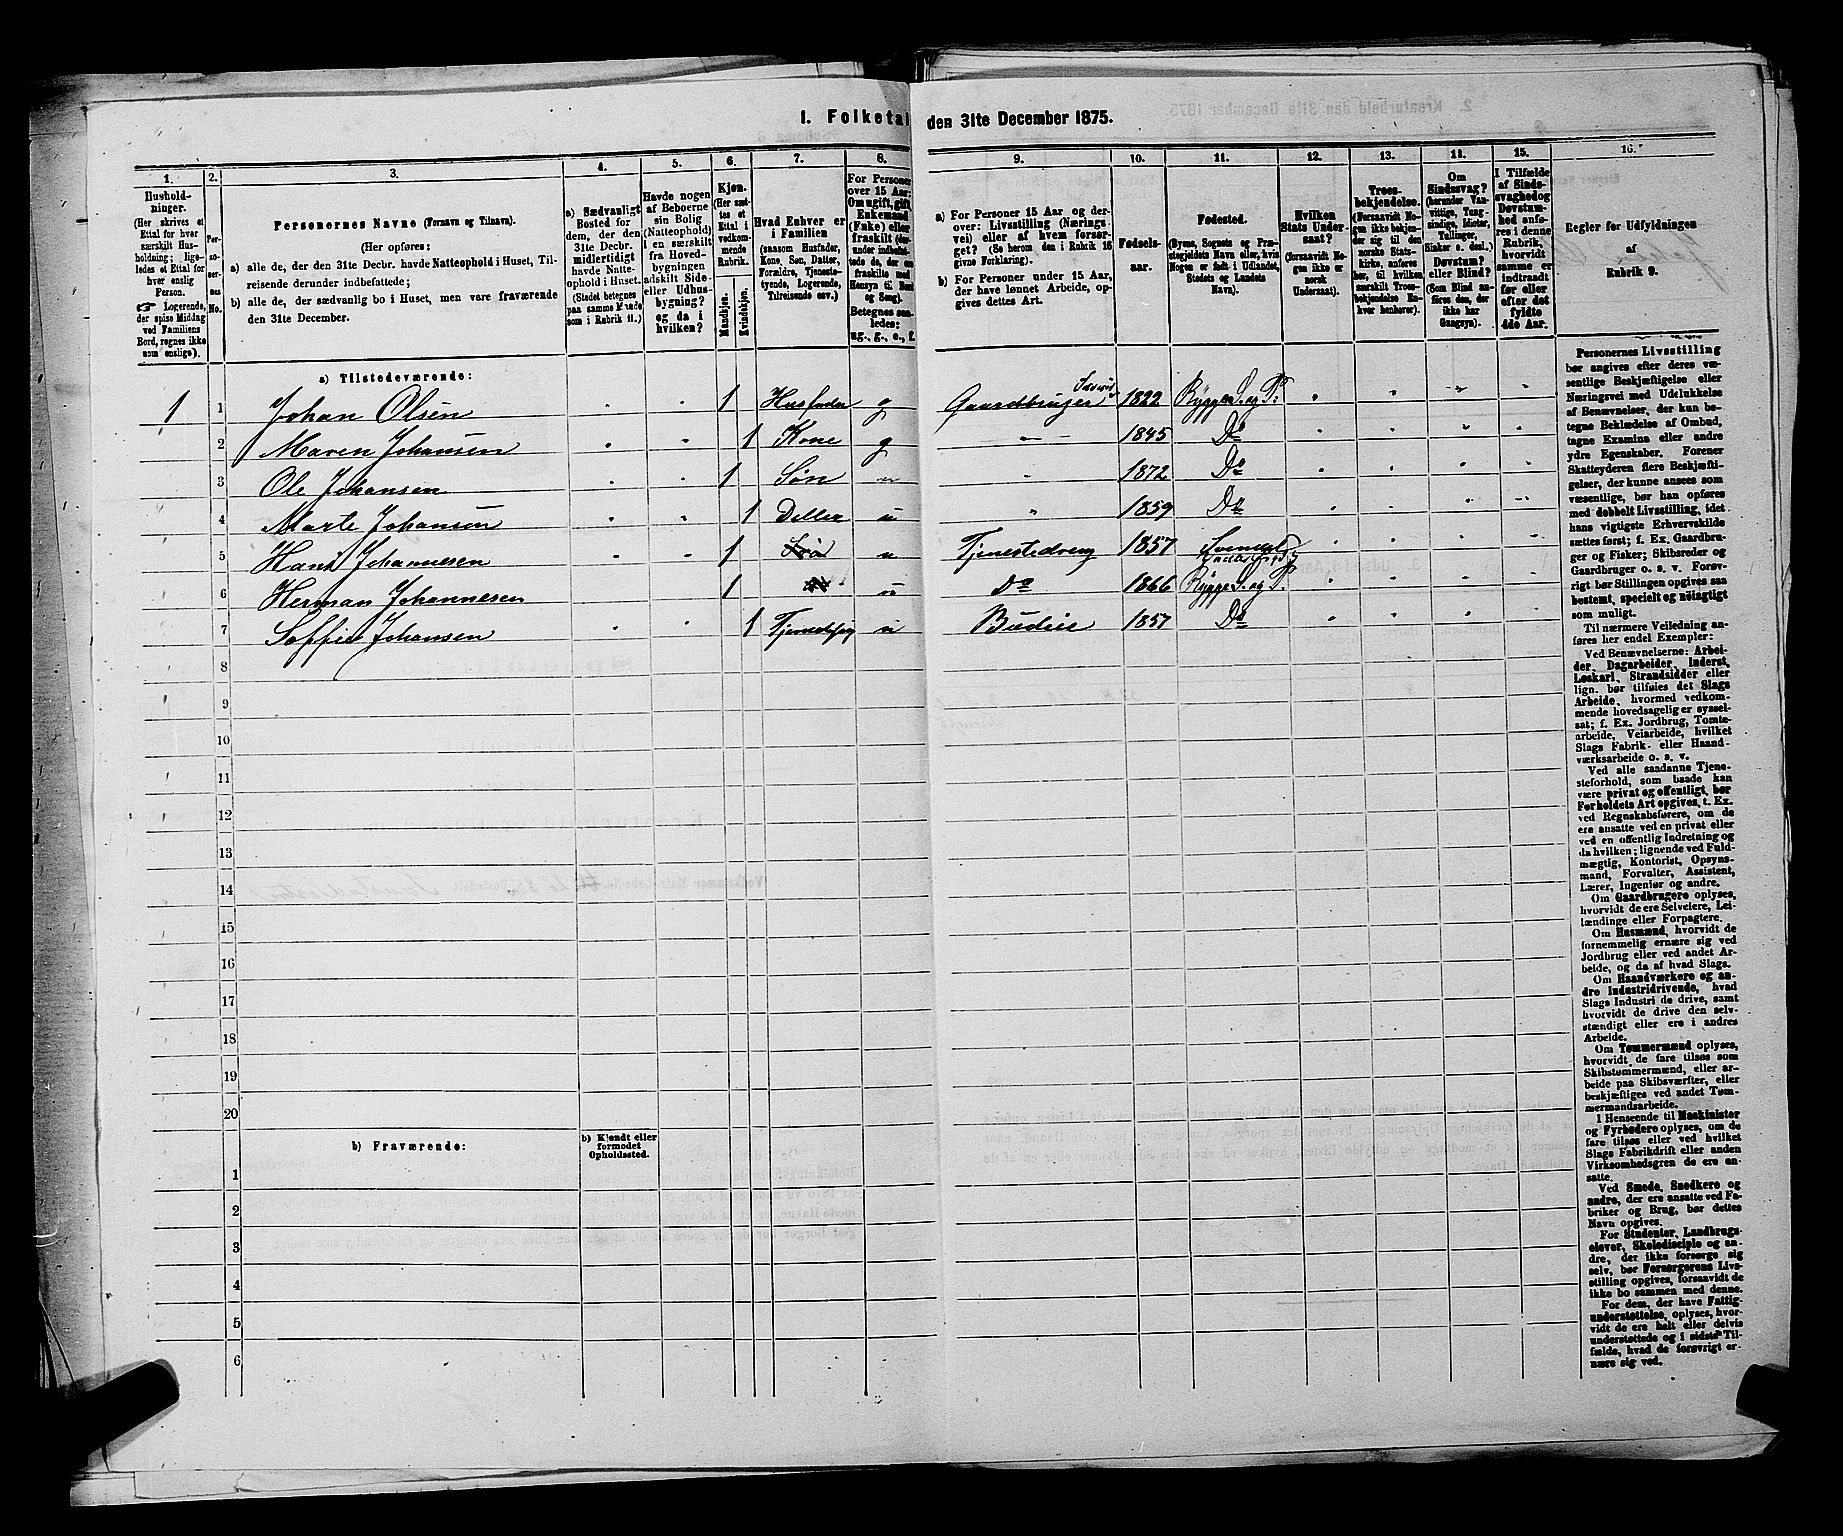 I. Folketal den 31te December 1875.
1. 2. 3. 4. 5. 6. 7. 8. 9. 10. 11. 12. 13. 14. 15. 16.
Hushold-
ninger.
(Her skrives et
Ettal for hver
særskilt Hus-
holdning; lige-
ledes et Ettal for
hver enslig
Person.
☞ Logerende,
der spise Middag
ved Familiens
Bord, regnes ikke
som enslige).
Per-
soner-
nes
No.
Personernes Navne (Fornavn og Tilnavn).
(Her opføres:
a) alle de, der den 31te Decbr. havde Natteophold i Huset, Til-
reisende derunder indbefattede;
b) alle de, der sædvanlig bo i Huset, men vare fraværende
den 31te December.
a) Sædvanligt
Bosted for
dem, der den
31te Decbr.
midlertidigt
havde Natte-
ophold i Huset.
(Stedet betegnes
paa samme Maade
som i Rubrik 11.)
Havde nogen
af Beboerne
sin Bolig
(Natteophold)
i en særskilt
fra Hoved-
bygningen
adskilt Side-
eller Udhus-
bygning?
og da i
hvilken?
Kjøn.
(Her sæt-
tes et
Ettal i
vedkom-
mende
Rubrik.
Mandkjøn.
Kvindekjøn.
Hvad Enhver er
i Familien
(saasom Husfader,
Kone, Søn, Datter,
Forældre, Tjeneste-
tyende, Logerende,
Tilreisende osv.)
For Personer
over 15 Aar:
Om ugift, gift,
Enkemand
(Enke) eller
fraskilt
Betegnes saa-
ledes:
ug., g., e., f.
a) For Personer 15 Aar og der-
over: Livsstilling (Nærings-
vei) eller af hvem forsør-
get? (Se herom den i Rubrik 16
givne Forklaring).
b) For Personer under 15 Aar,
der have lønnet Arbeide, op-
gives dettes Art.
Fødsels-
aar.
Fødested.
(Byens, Sognets og Præ-
stegjeldets Navn eller, hvis
Nogen er født i Udlandet,
Stedets og Landets
Navn).
Hvilken
Stats Under-
saat?
(forsaavidt No-
gen ikke er
norsk
Undersaat).
Troes-
bekjendelse.
(Forsaavidt No-
gen ikke bekjen-
der sig til den
norske Stats-
kirke, anføres
her, til hvilken
særskilt Troes-
bekjendelse En-
hver henhører).
Om
Sindssvag?
(herunder Van-
vittige, Tung-
sindige, Idioter,
Tullinger,
Sinker o. desl.)
Døvstum?
eller Blind?
(Som Blind an-
føres den, der
ikke har
Gangsyn).
I Tilfælde
af Sinds-
svaghed og
Døvstum-
hed anfø-
res i denne
Rubrik,
hvorvidt
samme er
indtraadt
før eller
efter det
fyldte
4de Aar.
Regler for Udfyldningen
af
Rubrik 9.
a) Tilstedeværende:
1 1 Johan Olsen 1 Husfader g Gaardbruger 1822 Rygge S. og P.
2 Maren Johansen 1 Kone g 1845 Do
3 Ole Johansen 1 Søn u 1872 Do
4 Marte Johansen 1 Datter u 1859 Do
5 Hans Johannesen 1 u Tjenestedreng 1857
6 Herman Johannesen 1 u Do 1866 Rygge S. og P.
7 Soffie Johansen 1 u Budeie 1857 Do
8
9
10
11
12
13
14
15
16
17
18
19
20
b) Fraværende:
b) Kjendt eller
formodet
Opholdssted.
1
2
3
4
5
6
Personernes Livsstilling
bør angives efter deres væ-
sentlige Beskjæftigelse eller
Næringsvei med Udelukkelse
af Benævnelser, der kun be-
tegne Beklædelse af Ombud,
tagne Examina eller andre
ydre Egenskaber. Forener
Skatteyderen flere Beskjæfti-
gelser, der kunne ansees som
væsentlige, bør han opføres
med dobbelt Livsstilling, idet
hans vigtigste Erhvervskilde
sættes først; f. Ex. Gaardbru-
ger og Fisker; Skibsreder og
Gaardbruger o. s. v. Forøv-
rigt bør Stillingen opgives saa
bestemt, specielt og nøiagtigt
som muligt.
Til nærmere Veiledning an-
føres her endel Exempler:
Ved Benævnelserne: Arbei-
der, Dagarbeider, Inderst,
Løskarl, Strandsidder eller
lign. bør tilføies det Slags
Arbeide, hvormed vedkom-
mende hovedsagelig er syssel-
sat; f. Ex. Jordbrug, Tomte-
arbeide, Veiarbeide, hvilket
Slags Fabrik- eller Haand-
værksarbeide o. s. v.
Ved alle saadanne Tjene-
steforhold, som baade kan
være privat og offentligt, bør
Forholdets Art opgives, t. Ex.
ved Regnskabsførere, om de
ere ansatte ved en privat eller
ved en offentlig Indretning og
da hvilken; lignende ved Fuld-
mægtig, Kontorist, Opsyns-
mand, Forvalter, Assistent,
Lærer, Ingeniør og andre.
Om Gaardbrugere oplyses,
hvorvidt de ere Selveiere, Lei-
lændinge eller Forpagtere.
Om Husmænd, hvorvidt de
fornemmelig ernære sig ved
Jordbrug eller ved andet Ar-
beide, og da af hvad Slags.
Om Haandværkere og an-
dre Industridrivende, hvad
Slags Industri de drive, samt
hvorvidt de drive den selv-
stændigt eller ere i andres
Arbeide.
Om Tømmermænd oplyses,
hvorvidt de fare tilsøs som
Skibstømmermænd, eller ar-
beide paa Skibsværfter, eller
beskjæftiges ved andet Tøm-
mermandsarbeide.
I Henseende til Maskinister
og Fyrbødere oplyses, om de
fare tilsøs eller ved hvilket
Slags Fabrikdrift eller anden
Virksomhedsgren de ere an-
satte.
Ved Smede, Snedkere og
andre, der ere ansatte ved Fa-
briker og Brug, bør dettes
Navn opgives.
For Studenter, Landbrugs-
elever, Skoledisciple og an-
dre, der ikke forsørge sig
selv, bør Forsørgerens Livs-
stilling opgives, forsaavidt de
ikke bo sammen med denne.
For dem, der have Fattig-
understøttelse, oplyses, hvor-
vidt de ere helt eller delvis
understøttede og i sidste Til-
fælde, hvad de forøvrigt er-
nære sig ved.